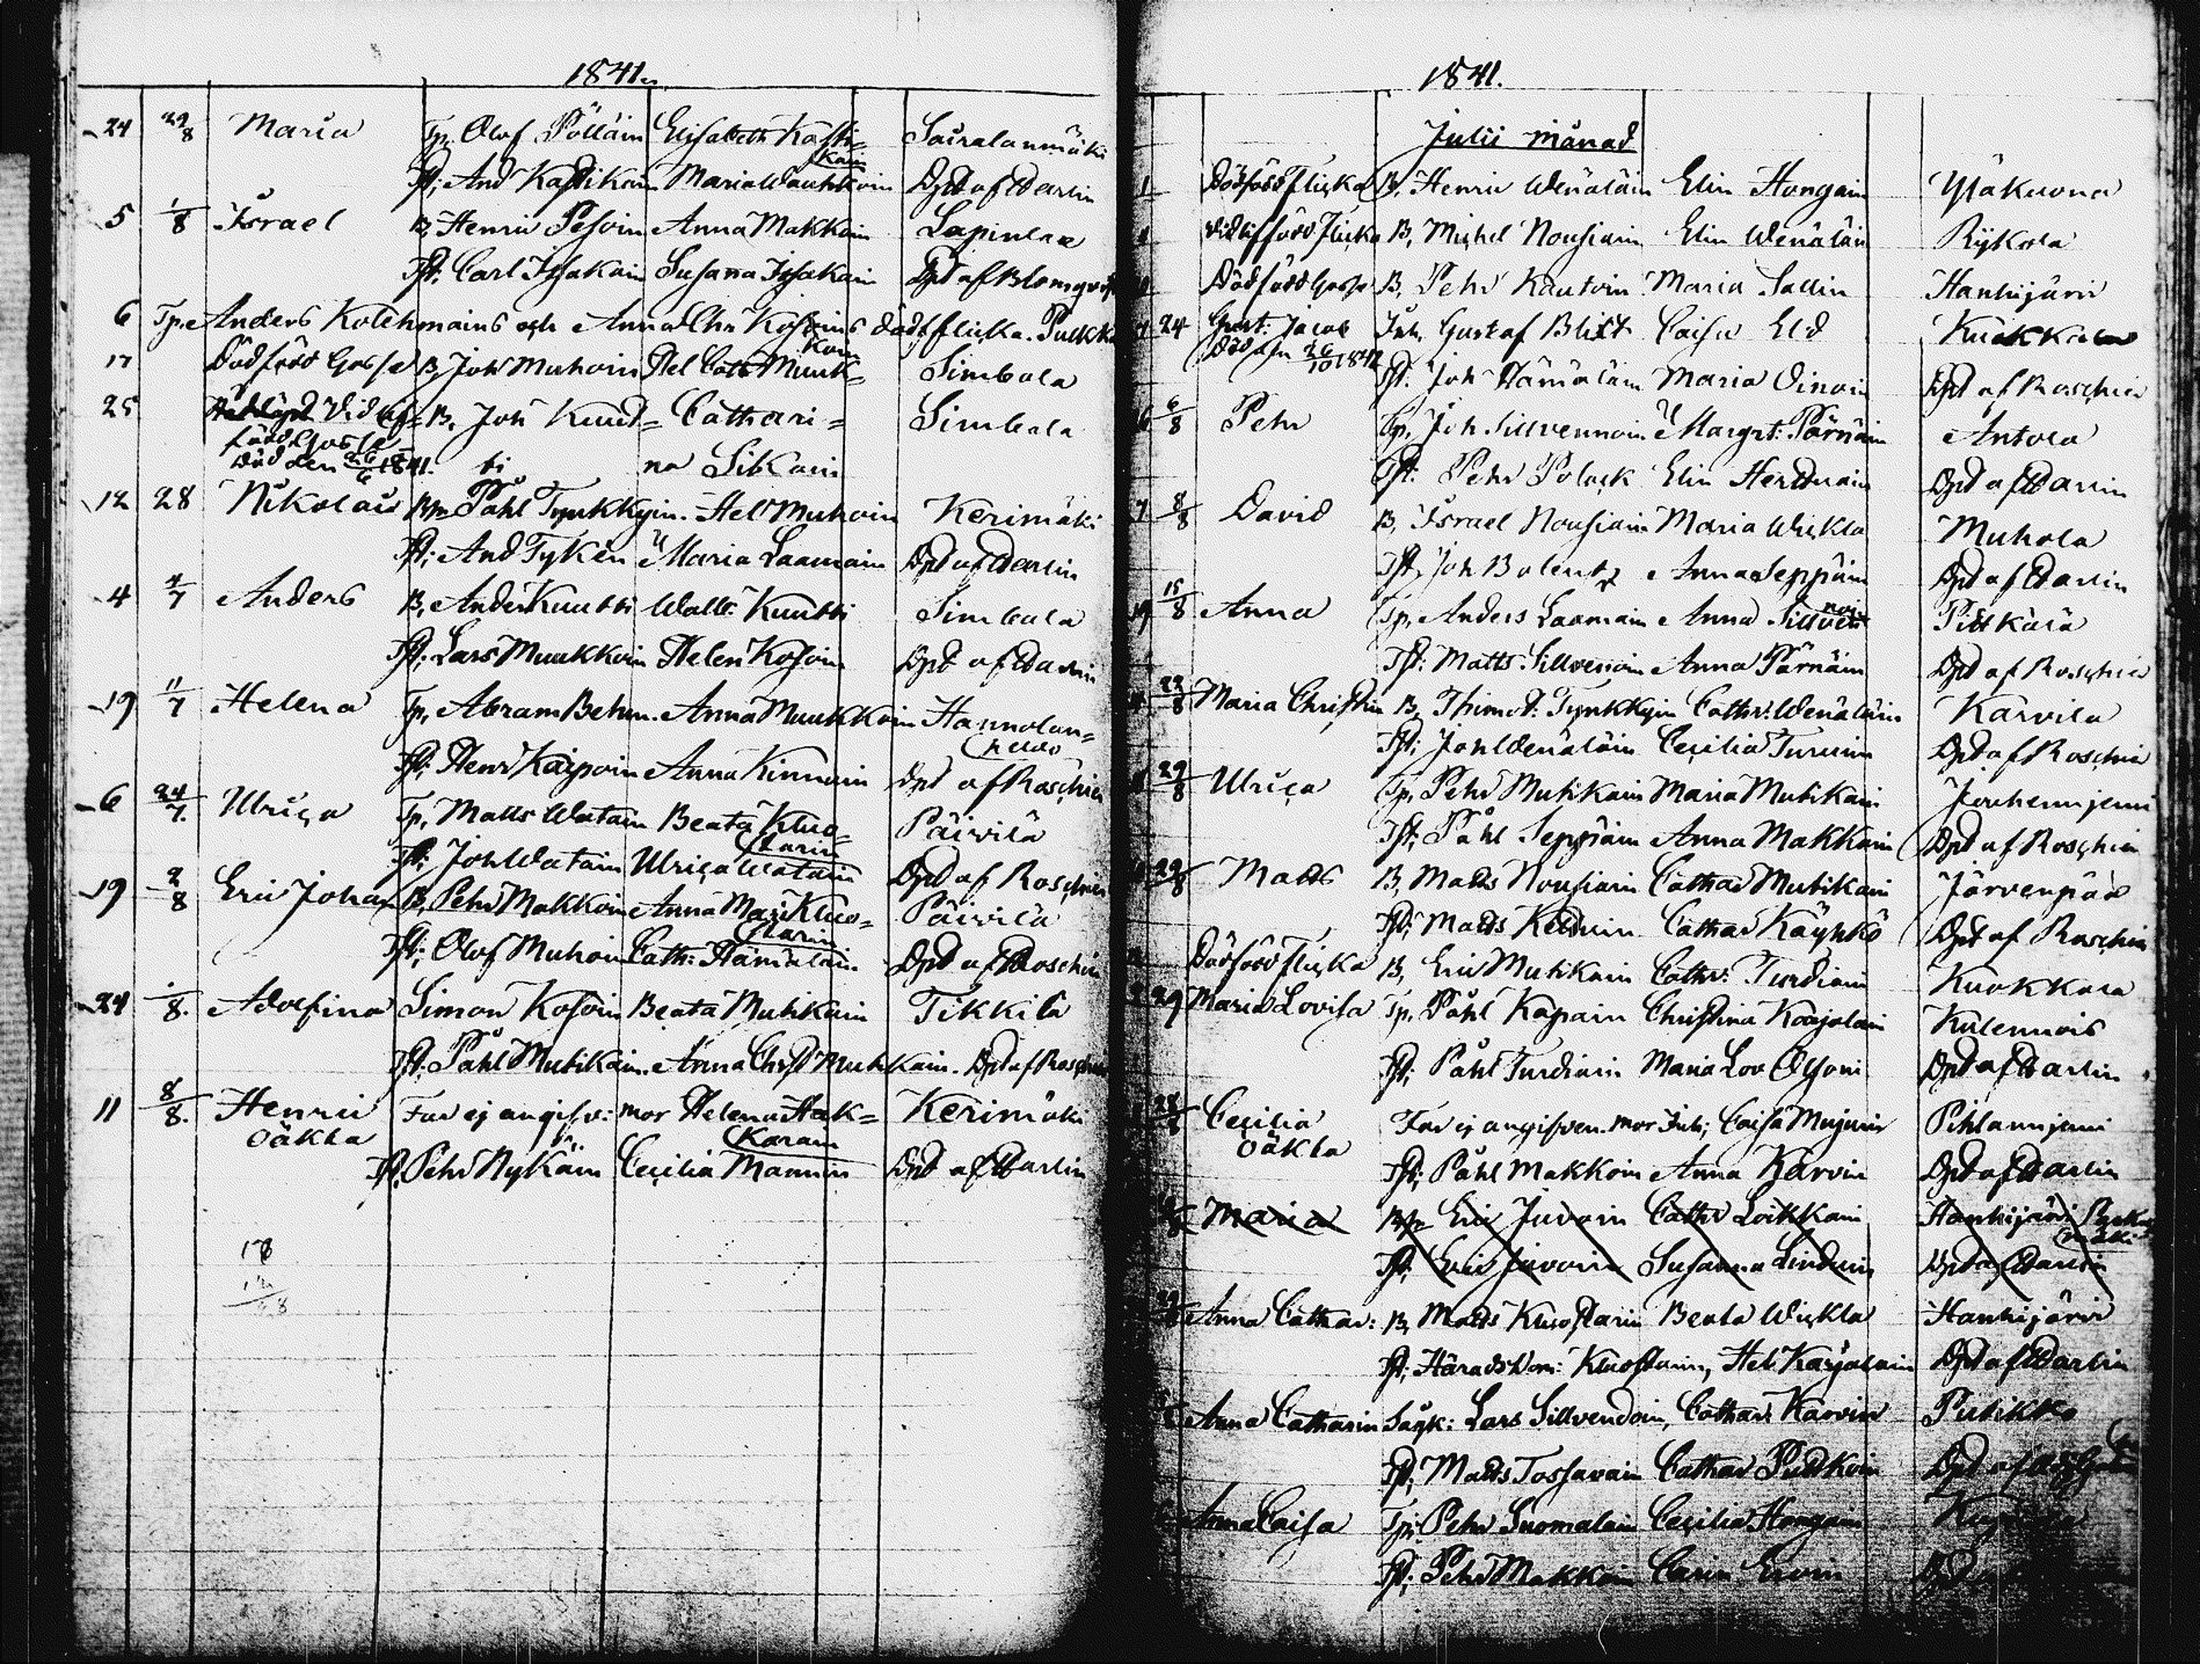 1841.
24 29/8 Maria Tp. Olof Pölläin Elisabeth Kasti= Sairalanmäki
kain
Tst; And Kastikain Maria Wauhkoin Dpt af Darlin
5 1/8 Israel B, Henric Pesoin Anna Makkoin Lapinlax
Tst: Carl Issakain Susana Issakain Dpt af Blomqvist
6 Tp. Anders Kolehmains och Anna Chr Kosoins dödf flicka.
17 Dödfödd Gosse B, Joh Muhoin Hel Cath Muuk= Simbala
koin
25 Vid lif= B. Joh Kuut= Cathari= Simbala
född Gosse
Död den 26/6 1841. ti na Sikain
12 28 Nikolai Bm Påhl Tynkkyin. Hel Muhoin Kerimäki
Tst; And Tykén Maria Laamain Dpt af Darlin
4 4/7 Anders B, Anders Kuutti Walb: Kuutti Simbala
Tst; Lars Muukkoin Helen Kosoin Dpt af Darlin
19 11/7 Helena Tp, Abram Behm. Anna Muukkoin Hannolan=
Tst; Henr Kaipain Anna Kinnain Dpt af Roschier
6 24/7. Ulrica Tp, Matts Watain Beata Kuo= Päivilä
starin
Tst: Joh Watain Ulrica Watain Dpt af Roschier
19 2/8 Eric Johan B, Pehr Makkoin Anna Mari Kuo= Päivilä
starin
Tst; Olof Muhoin Cath: Hämäläin Dpt af Roschier
24 1/8. Adolfina Simon Kosoin Beata Mutikain Tikkila
Tst: Påhl Mutikain. Anna Christ Mutikain. Dpt af Roschier
11 8/8. Henric Far ej angifv: mor Helena Hak= Kerimäki
oäkta karain
Tst. Pehr Nykäin Cecilia Mannin Dpt af Darlin
18
1841.
Julii månad
1 Dödfödd Flicka B, Henric Wenäläin Elin Hongain Yläkuona
Vid lif född flicka B, Michel Nousiain Elin Wenäläin Rykola
Dödfödd Gosse B, Pehr Kautoin Maria Sallin Hanhijärvi
24 Gust: Jacob Inh, Gustaf Blixt Caisa Eld Kuokkala
Död den 26/10 1842
Tst: Joh Hämäläin Maria Oinoin Dpt af Roschier
6/8 Pehr Tp, Joh Sillvennoin Margrt: Pärnäin Antola
Tst: Pehr Polack Elin Herttuain Dpt af Darlin
7 8/8 David B, Israel Nousiain Maria Wickla Muhola
Tst, Joh Bolentz Anna Seppäin Dpt af Darlin
19 15/8 Anna Tp, Anders Laamain Anna Sillven noin Pitkälä
Tst: Matts Sillvenoin Anna Pärnäin Dpt af Roschier
22/8 Maria Christin B, Thimot: Tynkkyin Cathr: Wenäläin Karvila
Tst; Joh Wenäläin Cecilia Turuin Dpt af Roschier
29/8 Ulrica Tp, Pehr Mutikain Maria Mutikain
Tst; Påhl Seppäin Anna Makkoin Dpt af Roschier
29/8 Matts B, Matts Nousiain Cathar Mutikain Järvenpää
Tst; Matts Keltuin Cathar Käyhkö Dpt af Roschier
Dödfödd Flicka B, Eric Mutikain Cathr: Turtiain Kuokkala
29 Maria Lovisa Tp, Påhl Kapain Christina Karjalain Kulennois
Tst; Påhl Turtiain Maria Lov Olsoni Dpt af Darlin
Cecilia Far ej angifven. mor Inh; Caisa Mujuin Pihlanniemi
oäkta
Tst; Påhl Makkoin Anna Karvin Dpt af Darlin
Maria Bm Eric Juvoin Cathr Loikkain Hanhijärvi
Tst; Eric Juvoin Susanna Linduin Dpt af Darlin
Anna Cathar: B, Matts Kuostarin Beata Wickla Hanhijärvi
Tst; Häradsdom: Kuostarin, Hel Karjalain Dpt af Darlin
Anna Catharin Lars Sillvendoin, Cathar Karvin Putikko
Tst; Matts Tossavain Cathar Puttkoin Dpt af
Anna Caisa Tp; Pehr Suomalain Cecilia Hongain
Tst; Pehr Makkoin Carin Dpt